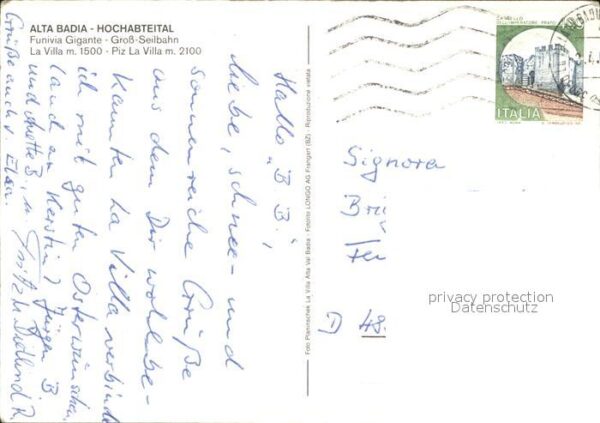 ALTA BADIA - HOCHABTEITAL
Funivia Gigante - Groß-Seilbahn
La Villa m. 1500 - Piz La Villa m. 2100
Hallo "B B.",
liebe, schnee- und
sonnenreiche Grüße
aus dem Dir wohlbe-
kannten La Villa verbinde
ich mit guten Osterwünschen
land an Kerstin, Jürgen B
und Lotte B. u.
Grüße auch v. Elsa.
Foto Planinschek La Villa Alta Val Badia - Fotolito LONGO AG Frangart (BZ) - Riproduzione vietata
CASTELLO
DELL'IMPERATORE PRATO
ITALIA
Signora
D 48
privacy protection
Datenschutz